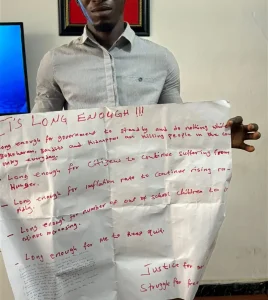 IT'S LONG ENOUGH!!!
Long enough for government to stand by and do nothing while
Bokoharam, bandits and kidnapper are killing people in the
country everyday.
- Long enough for Citizens to continue suffering from
Hunger.
- Long enough for inflation rate to continue rising
- Long enough for number of out of school children to
continue increasing.
- Long enough for me to keep quiet.
Justice for
Struggle for